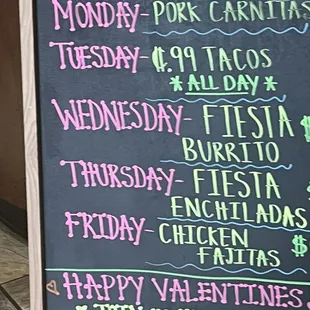 MONDAY- PORK CARNITAS
TUESDAY- ¢.99 TACOS
*ALL DAY*
WEDNESDAY- FIESTA $
BURRITO
THURSDAY- FIESTA
ENCHILADAS
FRIDAY- CHICKEN $
FAJITAS
HAPPY VALENTINES